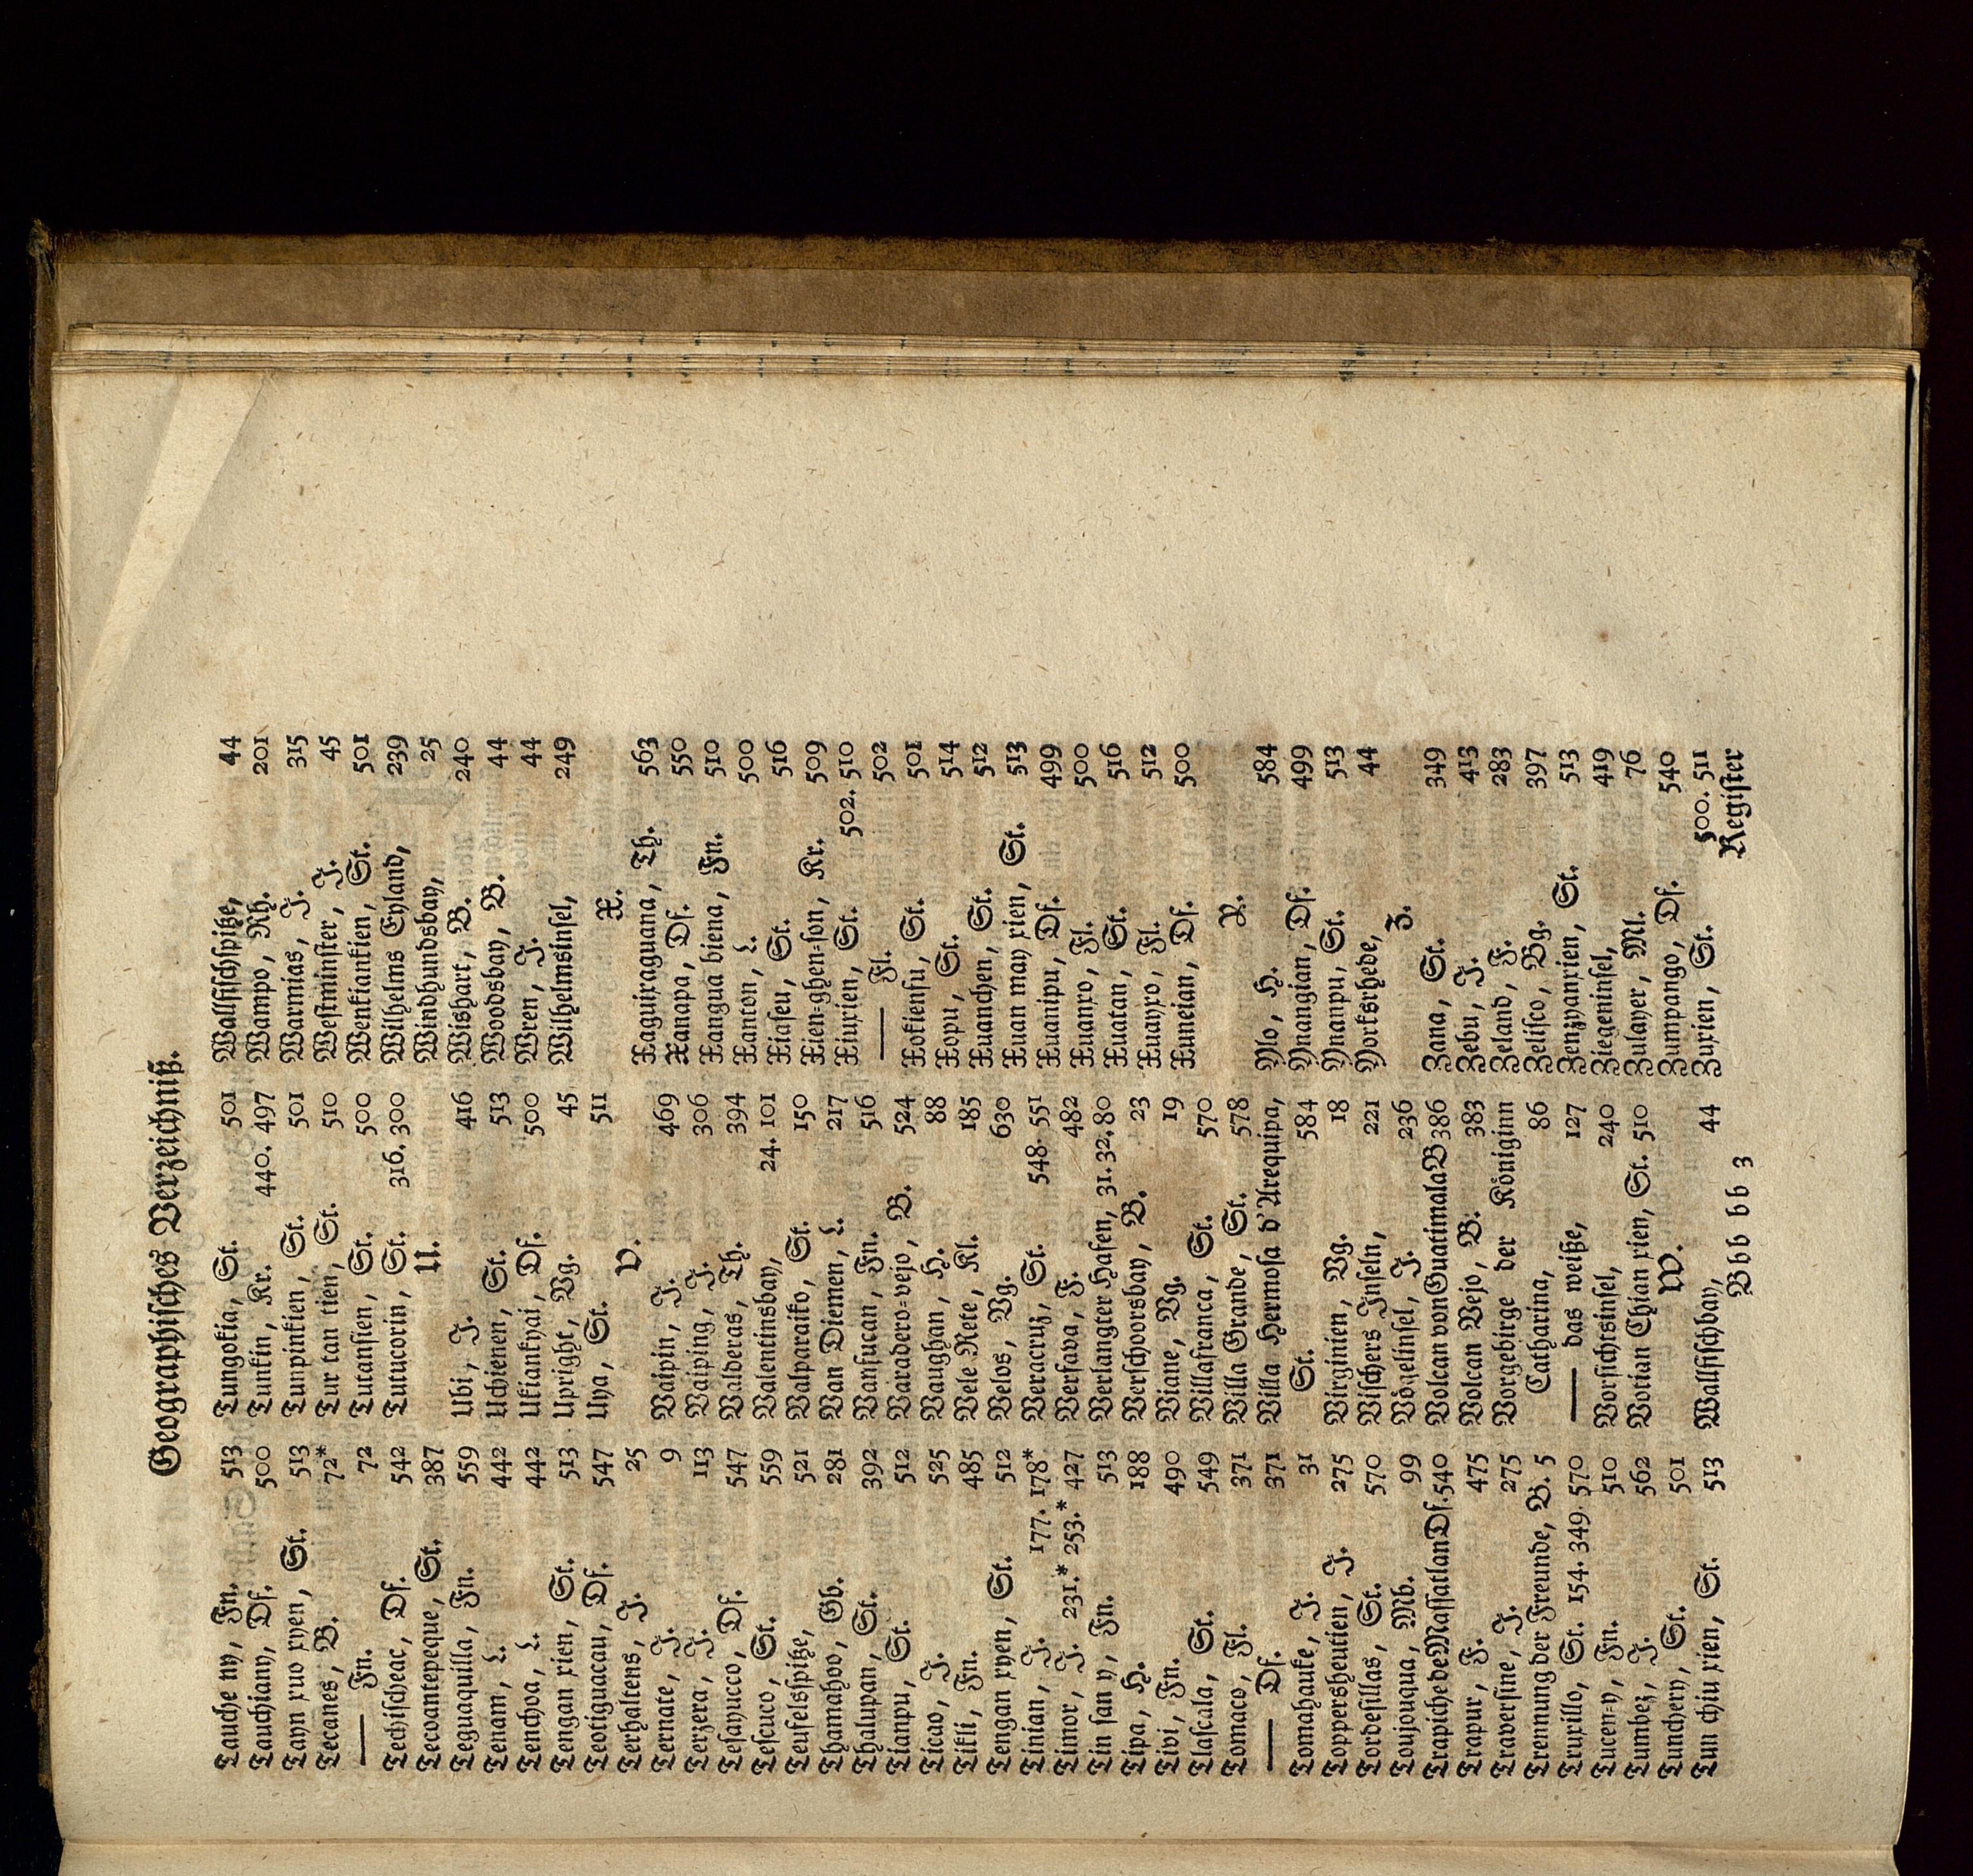 Geographisches Verzeichniß.
Tauche ny, Fn. 513
Tauchiany, Df. 500
Tayn xuo xyen, St. 513
Tecanes, B. 72*
—— Fn. 72
Techischeac, Df. 542
Tecoantepeque, St. 387
Teguaquilla, Fn. 559
Tenam, L. 442
Tenchoa, L. 442
Tengan xien, St. 513
Teotiguacau, Df. 547
Terhaltens, J. 25
Ternate, J. 9
Terzera, J. 113
Tesayucco, Df. 547
Tescuco, St. 559
Teufelsspitze, 521
Thamahoo, Gb. 281
Thalupan, St. 392
Tianpu, St. 512
Ticao, J. 525
Tikli, Fn. 485
Tengan xyen, St. 512
Tinian, J. 177. 178*
Timor, J. 231.* 253.* 427
Tin san y, Fn. 513
Tipa, H. 188
Tivi, Fn. 490
Tlascala, St. 549
Tomaco, Fl. 371
—— Df. 371
Tomahauke, J. 31
Toppersheutien, J. 275
Tordesillas, St. 570
Toujouqua, Mb. 99
Trapiche de Massatlan Df. 540
Trapur, F. 475
Traversine, J. 275
Trennung der Freunde, B. 5
Truxillo, St. 154. 349. 570
Tucen=y, Fn. 510
Tumbez, J. 562
Tunchery, St. 501
Tun chiu xien, St. 513
Tungokia, St. 501
Tunkin, Kr. 440. 497
Tunpinkien, St. 501
Tur tan tien, St. 510
Tutansien, St. 500
Tutucorin, St. 316. 300
U.
Ubi, J. 416
Uchienen, St. 513
Ukiankyai, Df. 500
Upright, Vg. 45
Uya, St. 511
V.
Vaipin, J. 469
Vaiping, J. 306
Valderas, Th. 394
Valentinsbay, 24. 101
Valparaiko, St. 150
Van Diemen, L. 217
Vansucan, Fn. 516
Varadero=vejo, B. 524
Vaughan, H. 88
Vele Rete, Kl. 185
Velos, Vg. 630
Veracruz, St. 548. 551
Versava, F. 482
Verlangter Hafen, 31. 32. 80
Verschoorsbay, B. 23
Viane, Vg. 19
Villafranca, St. 570
Villa Grande, St. 578
Villa Hermosa d'Arequipa,
St. 584
Virginien, Vg. 18
Vischers Inseln, 221
Vögelinsel, J. 236
Volcan von Guatimala B 386
Volcan Vejo, B. 383
Vorgebirge der Königinn
Catharina, 86
—— das weiße, 127
Vorsichtsinsel, 240
Votian Chian xien, St. 510
W.
Wallfischbay, 44
Wallfischspitze, 44
Wampo, Rh. 201
Warmias, J. 315
Westminster, J. 45
Wenkiankien, St. 501
Wilhelms Eyland, 239
Windhundsbay, 25
Wishart, B. 240
Woodsbay, B. 44
Wren, J. 44
Wilhelmsinsel, 249
X.
Xaguixaguana, Th. 563
Xanapa, Df. 550
Xangua biena, Fn. 510
Xanton, L. 500
Xiaseu, St. 516
Xien=ghen=son, Kr. 509
Xiuxien, St. 502. 510
—— Fl. 502
Xokiensu, St. 501
Xopu, St. 514
Xuanchen, St. 512
Xuan may xien, St. 513
Xuanipu, Df. 499
Xuanxo, Fl. 500
Xuatan, St. 516
Xuayxo, Fl. 512
Xuneian, Df. 500
Y.
Ylo, H. 584
Ynangian, Df. 499
Ynanpu, St. 513
Yorksrhede, 44
Z.
Zana, St. 349
Zebu, J. 413
Zeland, F. 283
Zelisco, Bg. 397
Zenzyanxien, St. 513
Ziegeninsel, 419
Zulayer, Ml. 76
Zumpango, Df. 540
Zuxien, St. 500. 511
Bbb bb 3
Register